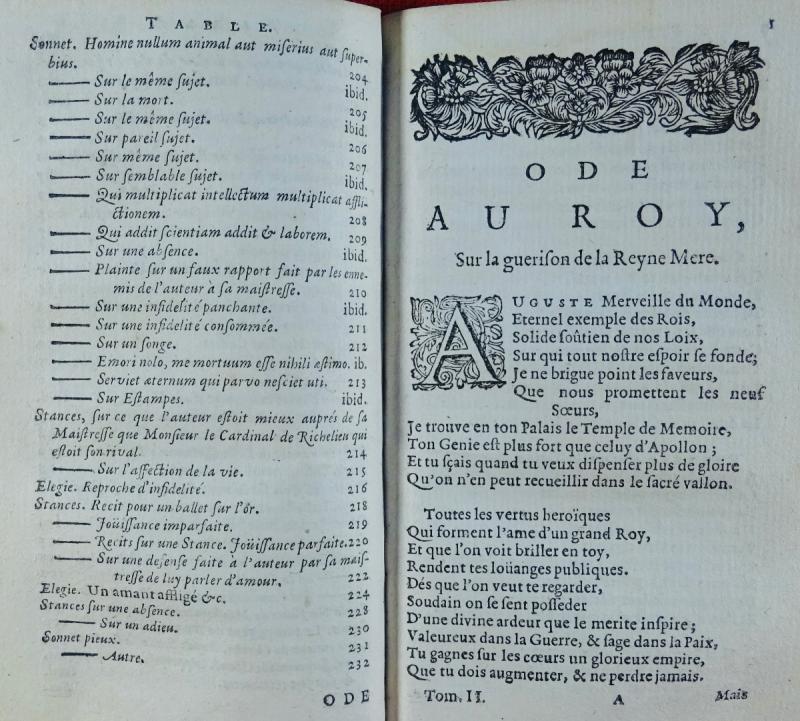 TABLE.
Sonnet. Homine nullum animal aut miserius aut super-
bius. 204
—— Sur le même sujet. ibid.
—— Sur la mort. 205
—— Sur le même sujet. ibid.
—— Sur pareil sujet. 206
—— Sur même sujet. 207
—— Sur semblable sujet. ibid.
—— Qui multiplicat intellectum multiplicat affli-
ctionem. 208
—— Qui addit scientiam addit & laborem. 209
—— Sur une absence. ibid.
—— Plainte sur un faux rapport fait par les enne-
mis de l'auteur à sa maistresse. 210
—— Sur une infidelité panchante. ibid.
—— Sur une infidelité consommée. 211
—— Sur un songe. 212
—— Emori nolo, me mortuum esse nihili æstimo. ib.
—— Serviet æternum qui parvo nesciet uti. 213
—— Sur Estampes. ibid.
Stances, sur ce que l'auteur estoit mieux auprés de sa
Maistresse que Monsieur le Cardinal de Richelieu qui
estoit son rival. 214
—— Sur l'affection de la vie. 215
Elegie. Reproche d'infidelité. 216
Stances. Recit pour un ballet sur l'or. 218
—— Joüissance imparfaite. 219
—— Recits sur une Stance. Joüissance parfaite. 220
—— Sur une defense faite à l'auteur par sa mais-
tresse de luy parler d'amour. 222
Elegie. Un amant affligé &c. 224
Stances sur une absence. 228
—— Sur un adieu. 230
Sonnet pieux. 231
—— Autre. 232
ODE
1
ODE
AU ROY,
Sur la guerison de la Reyne Mere.
AUGUSTE Merveille du Monde,
Eternel exemple des Rois,
Solide soûtien de nos Loix,
Sur qui tout nostre espoir se fonde;
Je ne brigue point les faveurs,
Que nous promettent les neuf
Sœurs,
Je trouve en ton Palais le Temple de Memoire,
Ton Genie est plus fort que celuy d'Apollon;
Et tu sçais quand tu veux dispenser plus de gloire
Qu'on n'en peut recueillir dans le sacré vallon.
Toutes les vertus heroïques
Qui forment l'ame d'un grand Roy,
Et que l'on voit briller en toy,
Rendent tes loüanges publiques.
Dés que l'on veut te regarder,
Soudain on se sent posseder
D'une divine ardeur que le merite inspire;
Valeureux dans la Guerre, & sage dans la Paix,
Tu gagnes sur les cœurs un glorieux empire,
Que tu dois augmenter, & ne perdre jamais.
Tom. II. A Mais